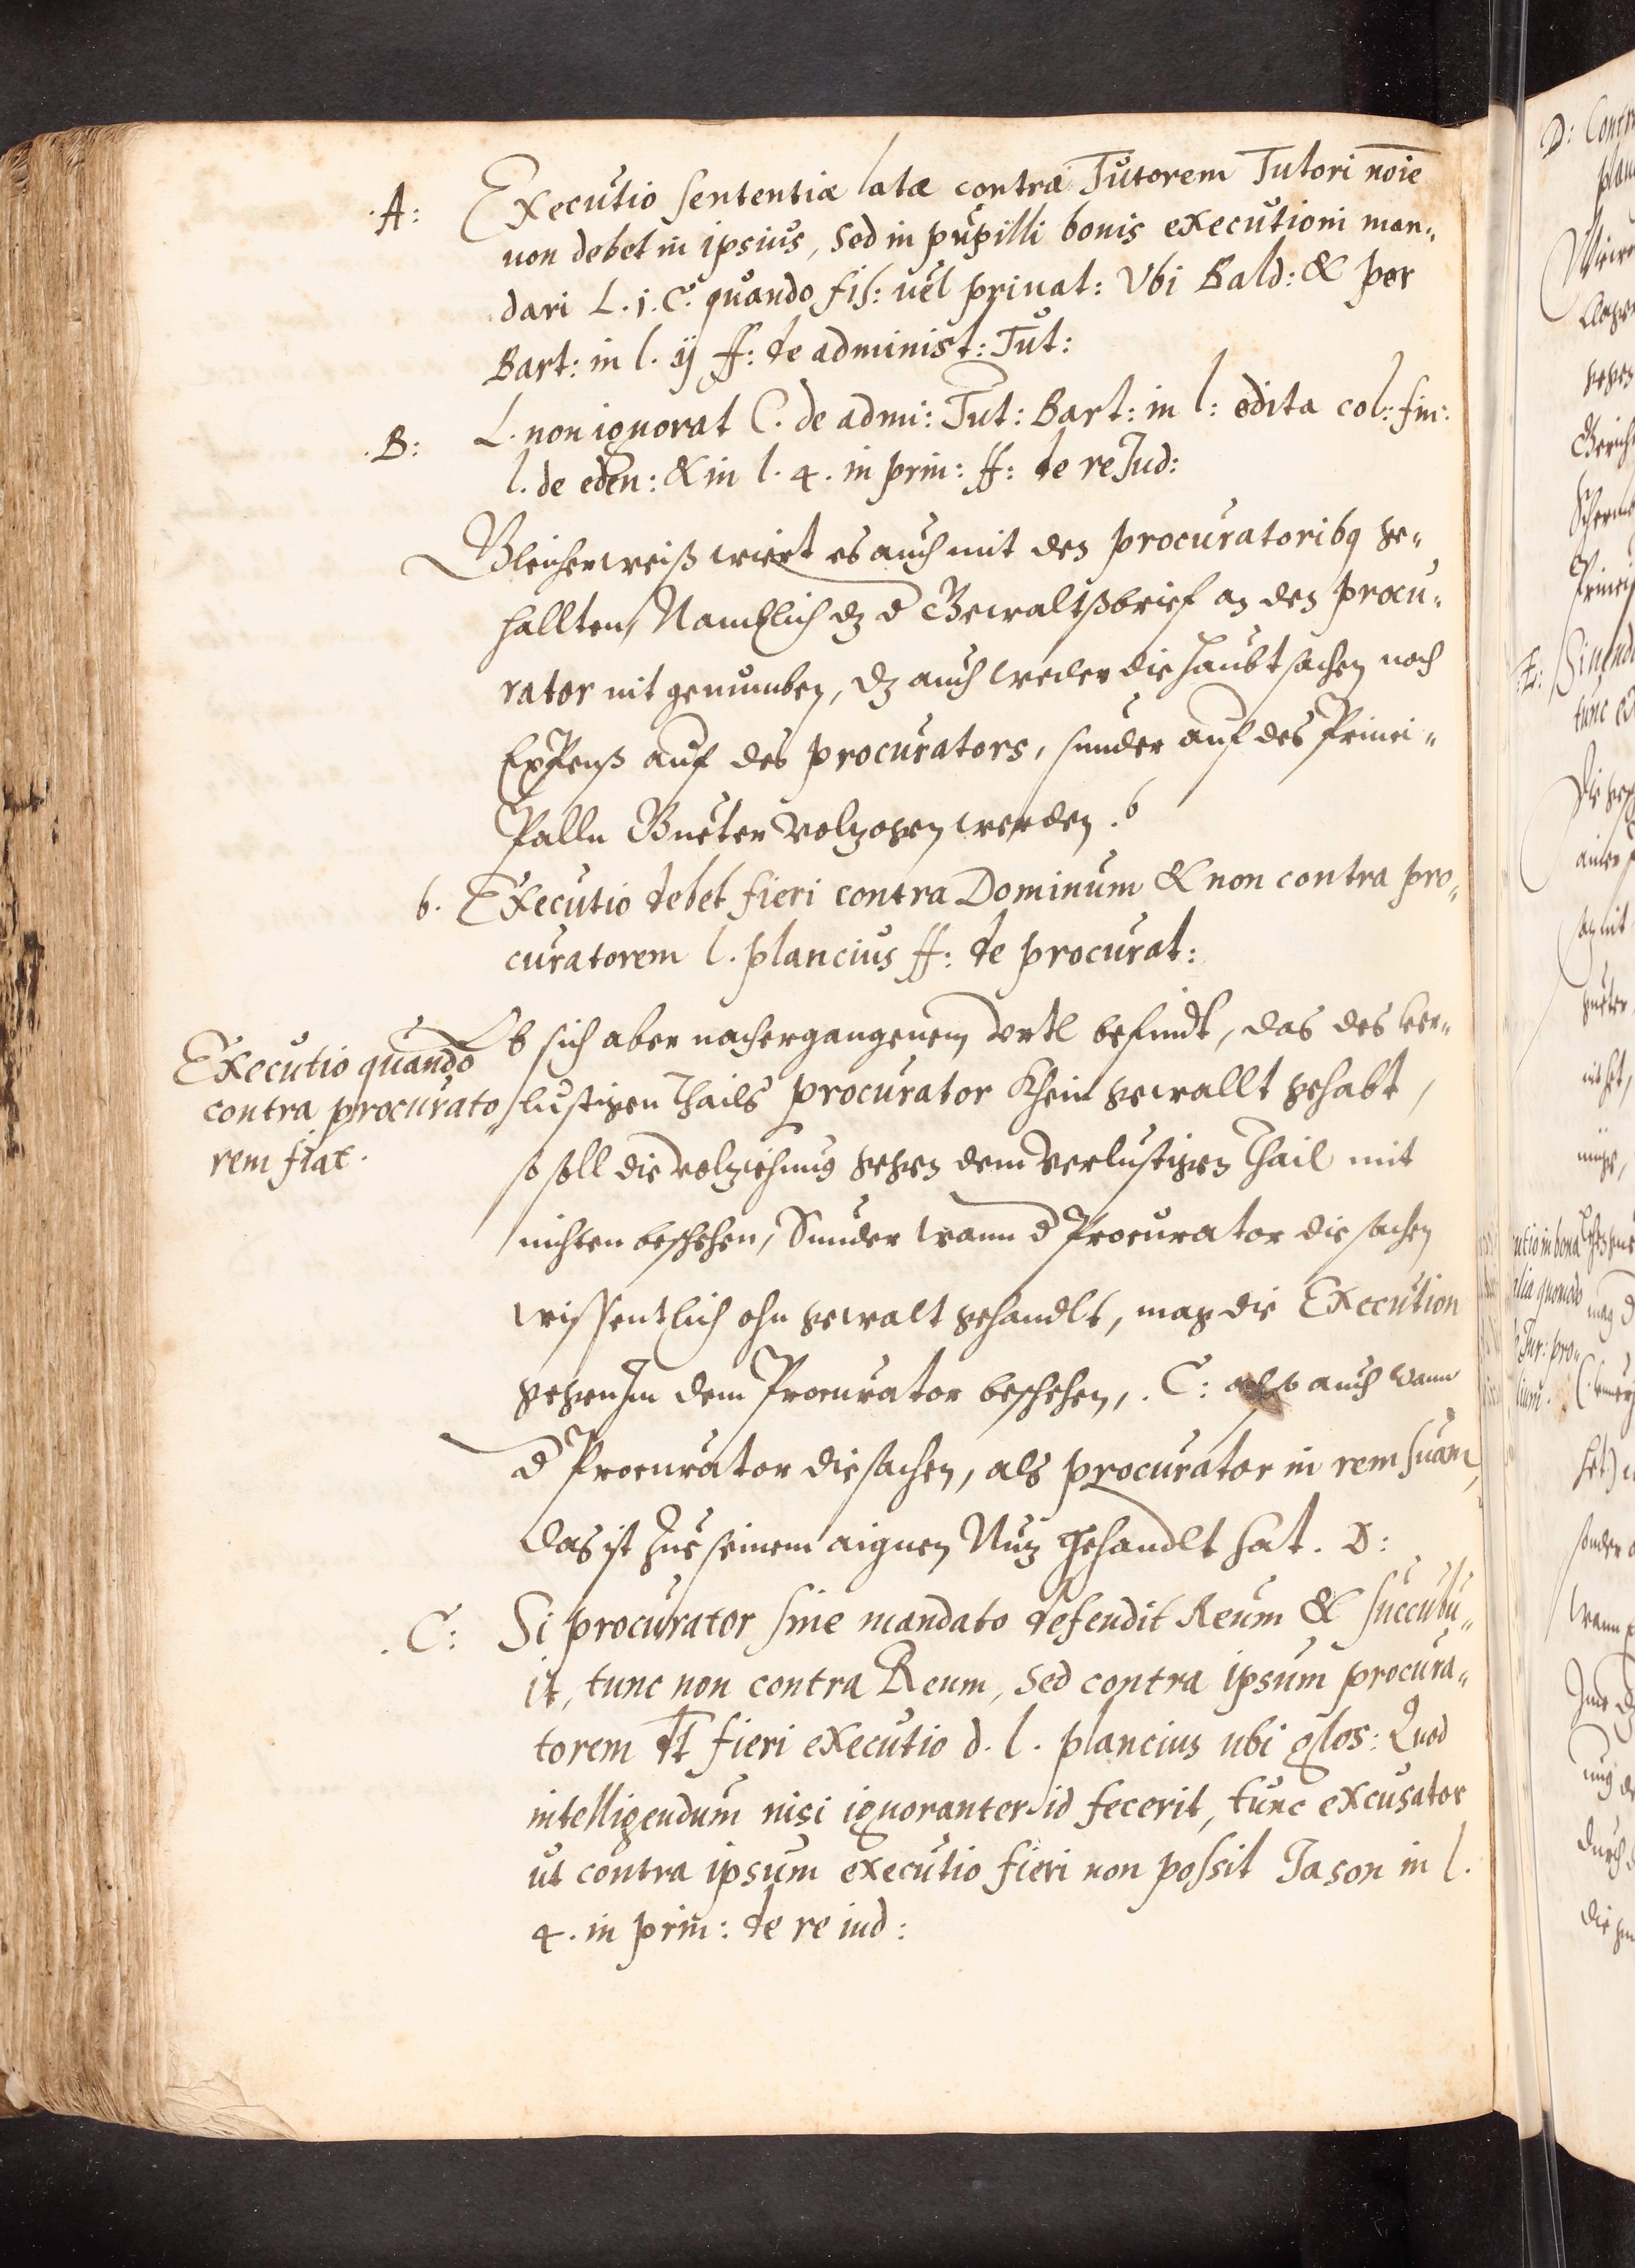 .A: Executio sententiæ latæ contra Tutorem Tutori noīe
non debet in ipsius, sed in pupilli bonis executioni man„
dari L. j. C. quando fis: uel priuat: Vbi Bald: & per
Bart: in l. ij ff: de administ: Tut:
.B: L. non ignorat C. de admi: Tut: Bart: in l: edita col: fin:
l. de eden: & in l. 4. in prin: ff: de re Jud:
Gleicherweiß wiert es auch mit den procuratoribq ge„
hallten, Namblich dz d Gewaltßbrief an den procu„
rator nit genumben, dz auch weder die haubtsachen noch
Expenß auf des procurators, sunder auf des Princi„
palln Gueter volzogen werden . b
b. Executio debet fieri contra Dominum & non contra pro„
curatorem l. plancius ff: de procurat:
Executio quando
contra procurato„
rem fiat.
Ob sich aber nach ergangenem Vrtl befindt, das des ver„
lustigen Thails procurator Khein gewallt gehabt,
so soll die volziehung gegen dem verlustigen Thail mit
nichten beschehen, Sunder wann d Procurator die sachen
wissentlich ohn gewalt gehandlt, mag die Execution
gegen Im dem Procurator beschehen, . C: also auch wann
d Procurator die sachen, als procurator in rem suam,
das ist zue seinem aignen Nuz gehandlt hat. D:
.C: Si procurator sine mandato defendit Reum & succubu„
it, tunc non contra Reum, sed contra ipsum procura„
torem dt fieri executio d. l. plancius ubi glos: Quod
intelligendum nisi ignoranter id fecerit, tunc excusator
ut contra ipsum executio fieri non possit Jason in l.
4. in prin: de re iud: